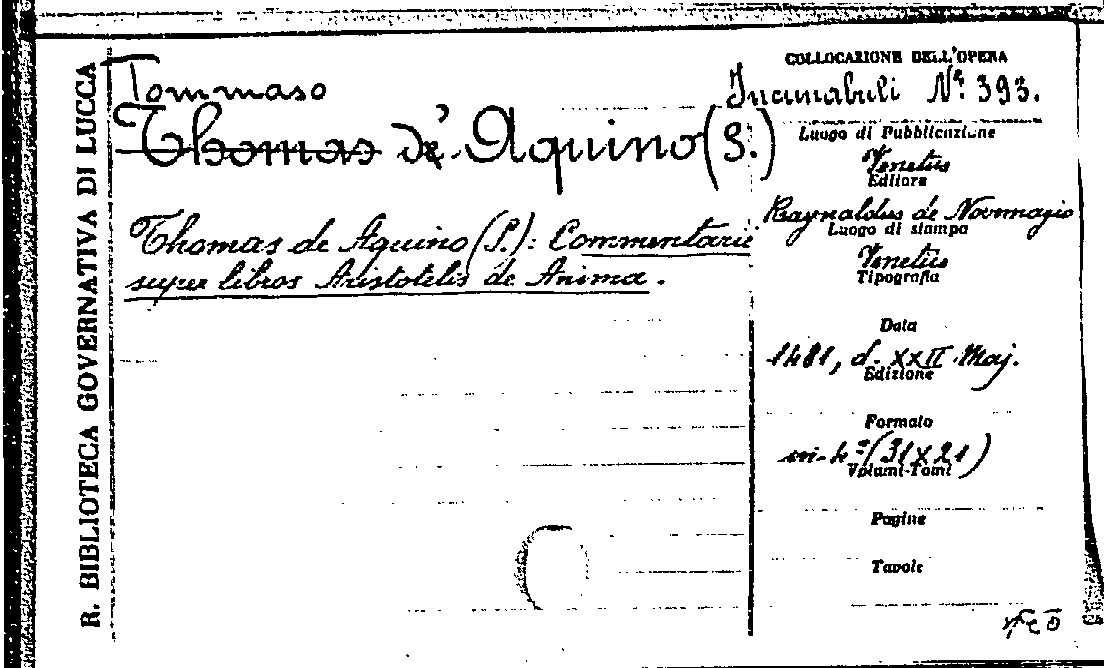 R. BIBLIOTECA GOVERNATIVA DI LUCCA
Tommaso
Thomas de' Aquino (S.)
Thomas de Aquino (S.): Commentarii
super libros Aristotelis de Anima.
COLLOCAZIONE DELL'OPERA
Incunabuli Nº 393.
Luogo di Pubblicazione
Venetiis
Editore
Raynaldus de Novmagio
Luogo di stampa
Venetiis
Tipografia
Data
1481, d. XXII Maj.
Edizione
Formato
in-4º (31x21)
Volumi-Tomi
Pagine
Tavole